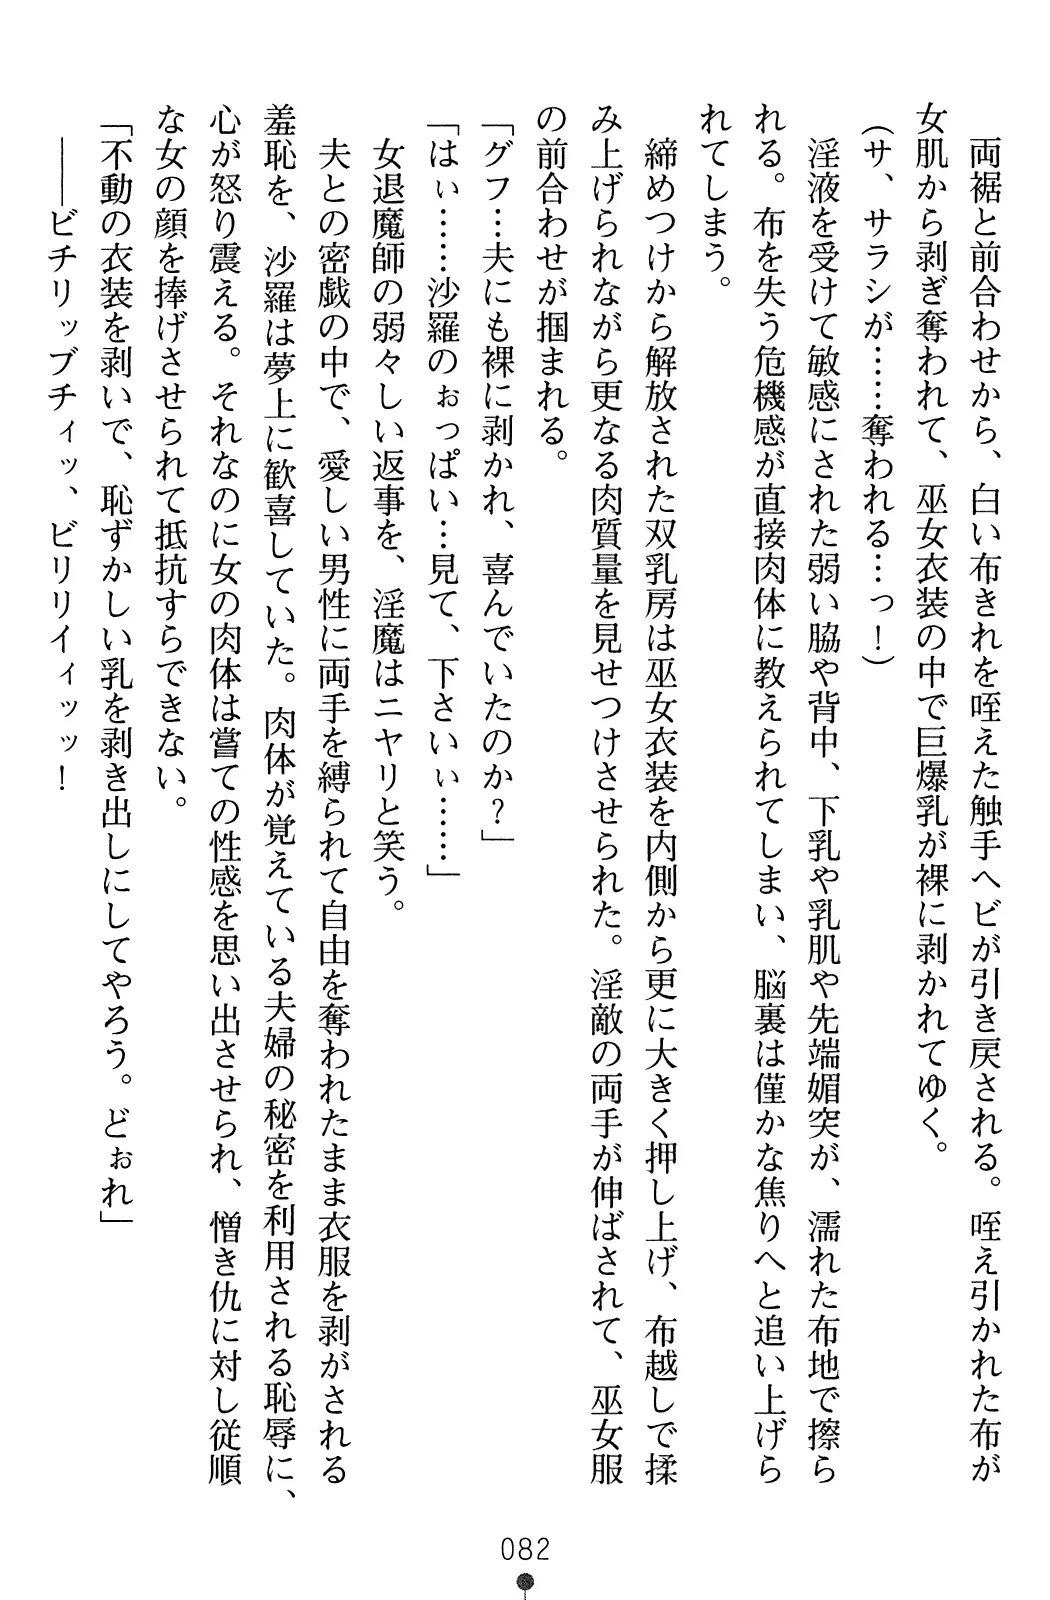 両裾と前合わせから、白い布きれを咥えた触手ヘビが引き戻される。咥え引かれた布が
女肌から剥ぎ奪われて、巫女衣装の中で巨爆乳が裸に剥かれてゆく。
（サ、サラシが……奪われる…っ！）
淫液を受けて敏感にされた弱い脇や背中、下乳や乳肌や先端媚突が、濡れた布地で擦ら
れる。布を失う危機感が直接肉体に教えられてしまい、脳裏は僅かな焦りへと追い上げら
れてしまう。
締めつけから解放された双乳房は巫女衣装を内側から更に大きく押し上げ、布越しで揉
み上げられながら更なる肉質量を見せつけさせられた。淫敵の両手が伸ばされて、巫女服
の前合わせが掴まれる。
「グフ…夫にも裸に剥かれ、喜んでいたのか？」
「はぃ……沙羅のぉっぱい…見て、下さいぃ……」
女退魔師の弱々しい返事を、淫魔はニヤリと笑う。
夫との密戯の中で、愛しい男性に両手を縛られて自由を奪われたまま衣服を剥がされる
羞恥を、沙羅は夢上に歓喜していた。肉体が覚えている夫婦の秘密を利用される恥辱に、
心が怒り震える。それなのに女の肉体は嘗ての性感を思い出させられ、憎き仇に対し従順
な女の顔を捧げさせられて抵抗すらできない。
「不動の衣装を剥いで、恥ずかしい乳を剥き出しにしてやろう。どぉれ」
――ビチリッブチィッ、ビリリイィッッ！
082